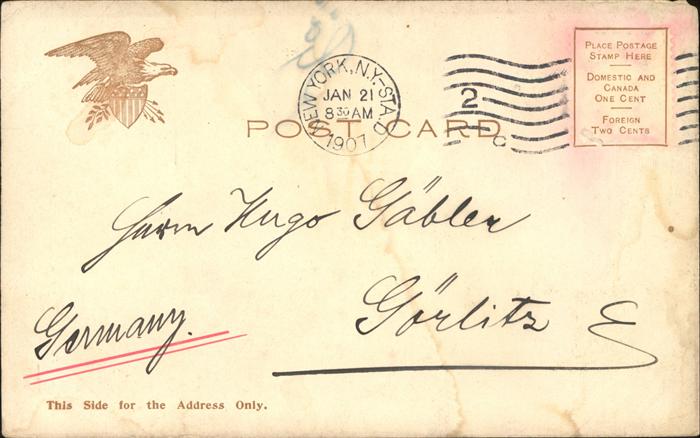 NEW YORK, N.Y.-STA. O
JAN 21
8 30 AM
1907
2
C
PLACE POSTAGE
STAMP HERE
DOMESTIC AND
CANADA
ONE CENT
FOREIGN
TWO CENTS
POST CARD
Herrn Hugo Gäbler
Görlitz
Germany.
This Side for the Address Only.